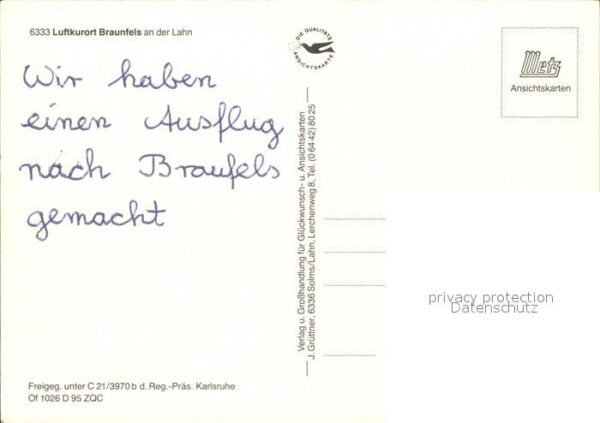 6333 Luftkurort Braunfels an der Lahn
Wir haben
einen Ausflug
nach Braufels
gemacht
Freigeg. unter C 21/3970 b d. Reg.-Präs. Karlsruhe
Of 1026 D 95 ZQC
Verlag u. Großhandlung für Glückwunsch- u. Ansichtskarten
J. Grüttner, 6336 Solms/Lahn, Lerchenweg 8, Tel. (0 64 42) 80 25
DIE QUALITÄTS
ANSICHTSKARTE
Metz
Ansichtskarten
privacy protection
Datenschutz